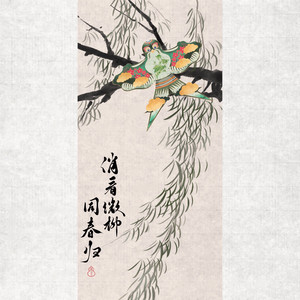 消看微柳
同春归